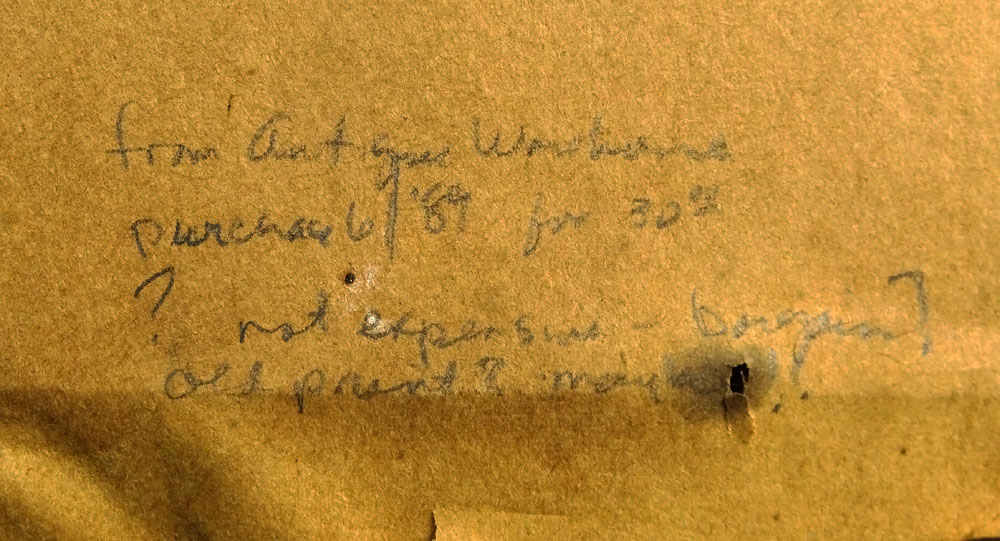 from Antique Warehouse
purchas 6/'89 for 30
? not expensive - bargain?
old print?